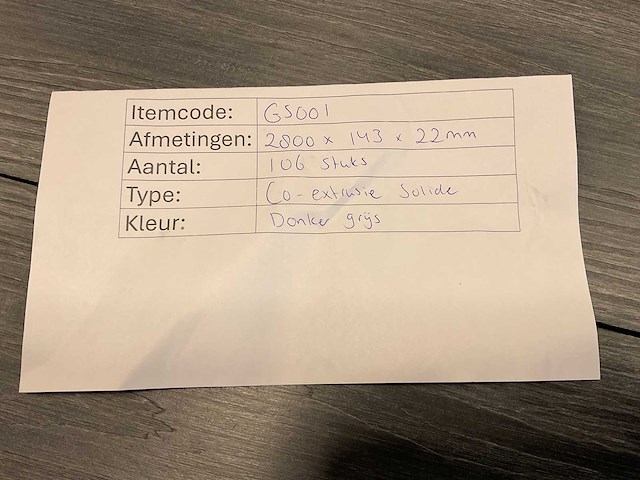 Itemcode: GS001
Afmetingen: 2800 x 143 x 22mm
Aantal: 106 stuks
Type: Co-extrusie Solide
Kleur: Donker grijs